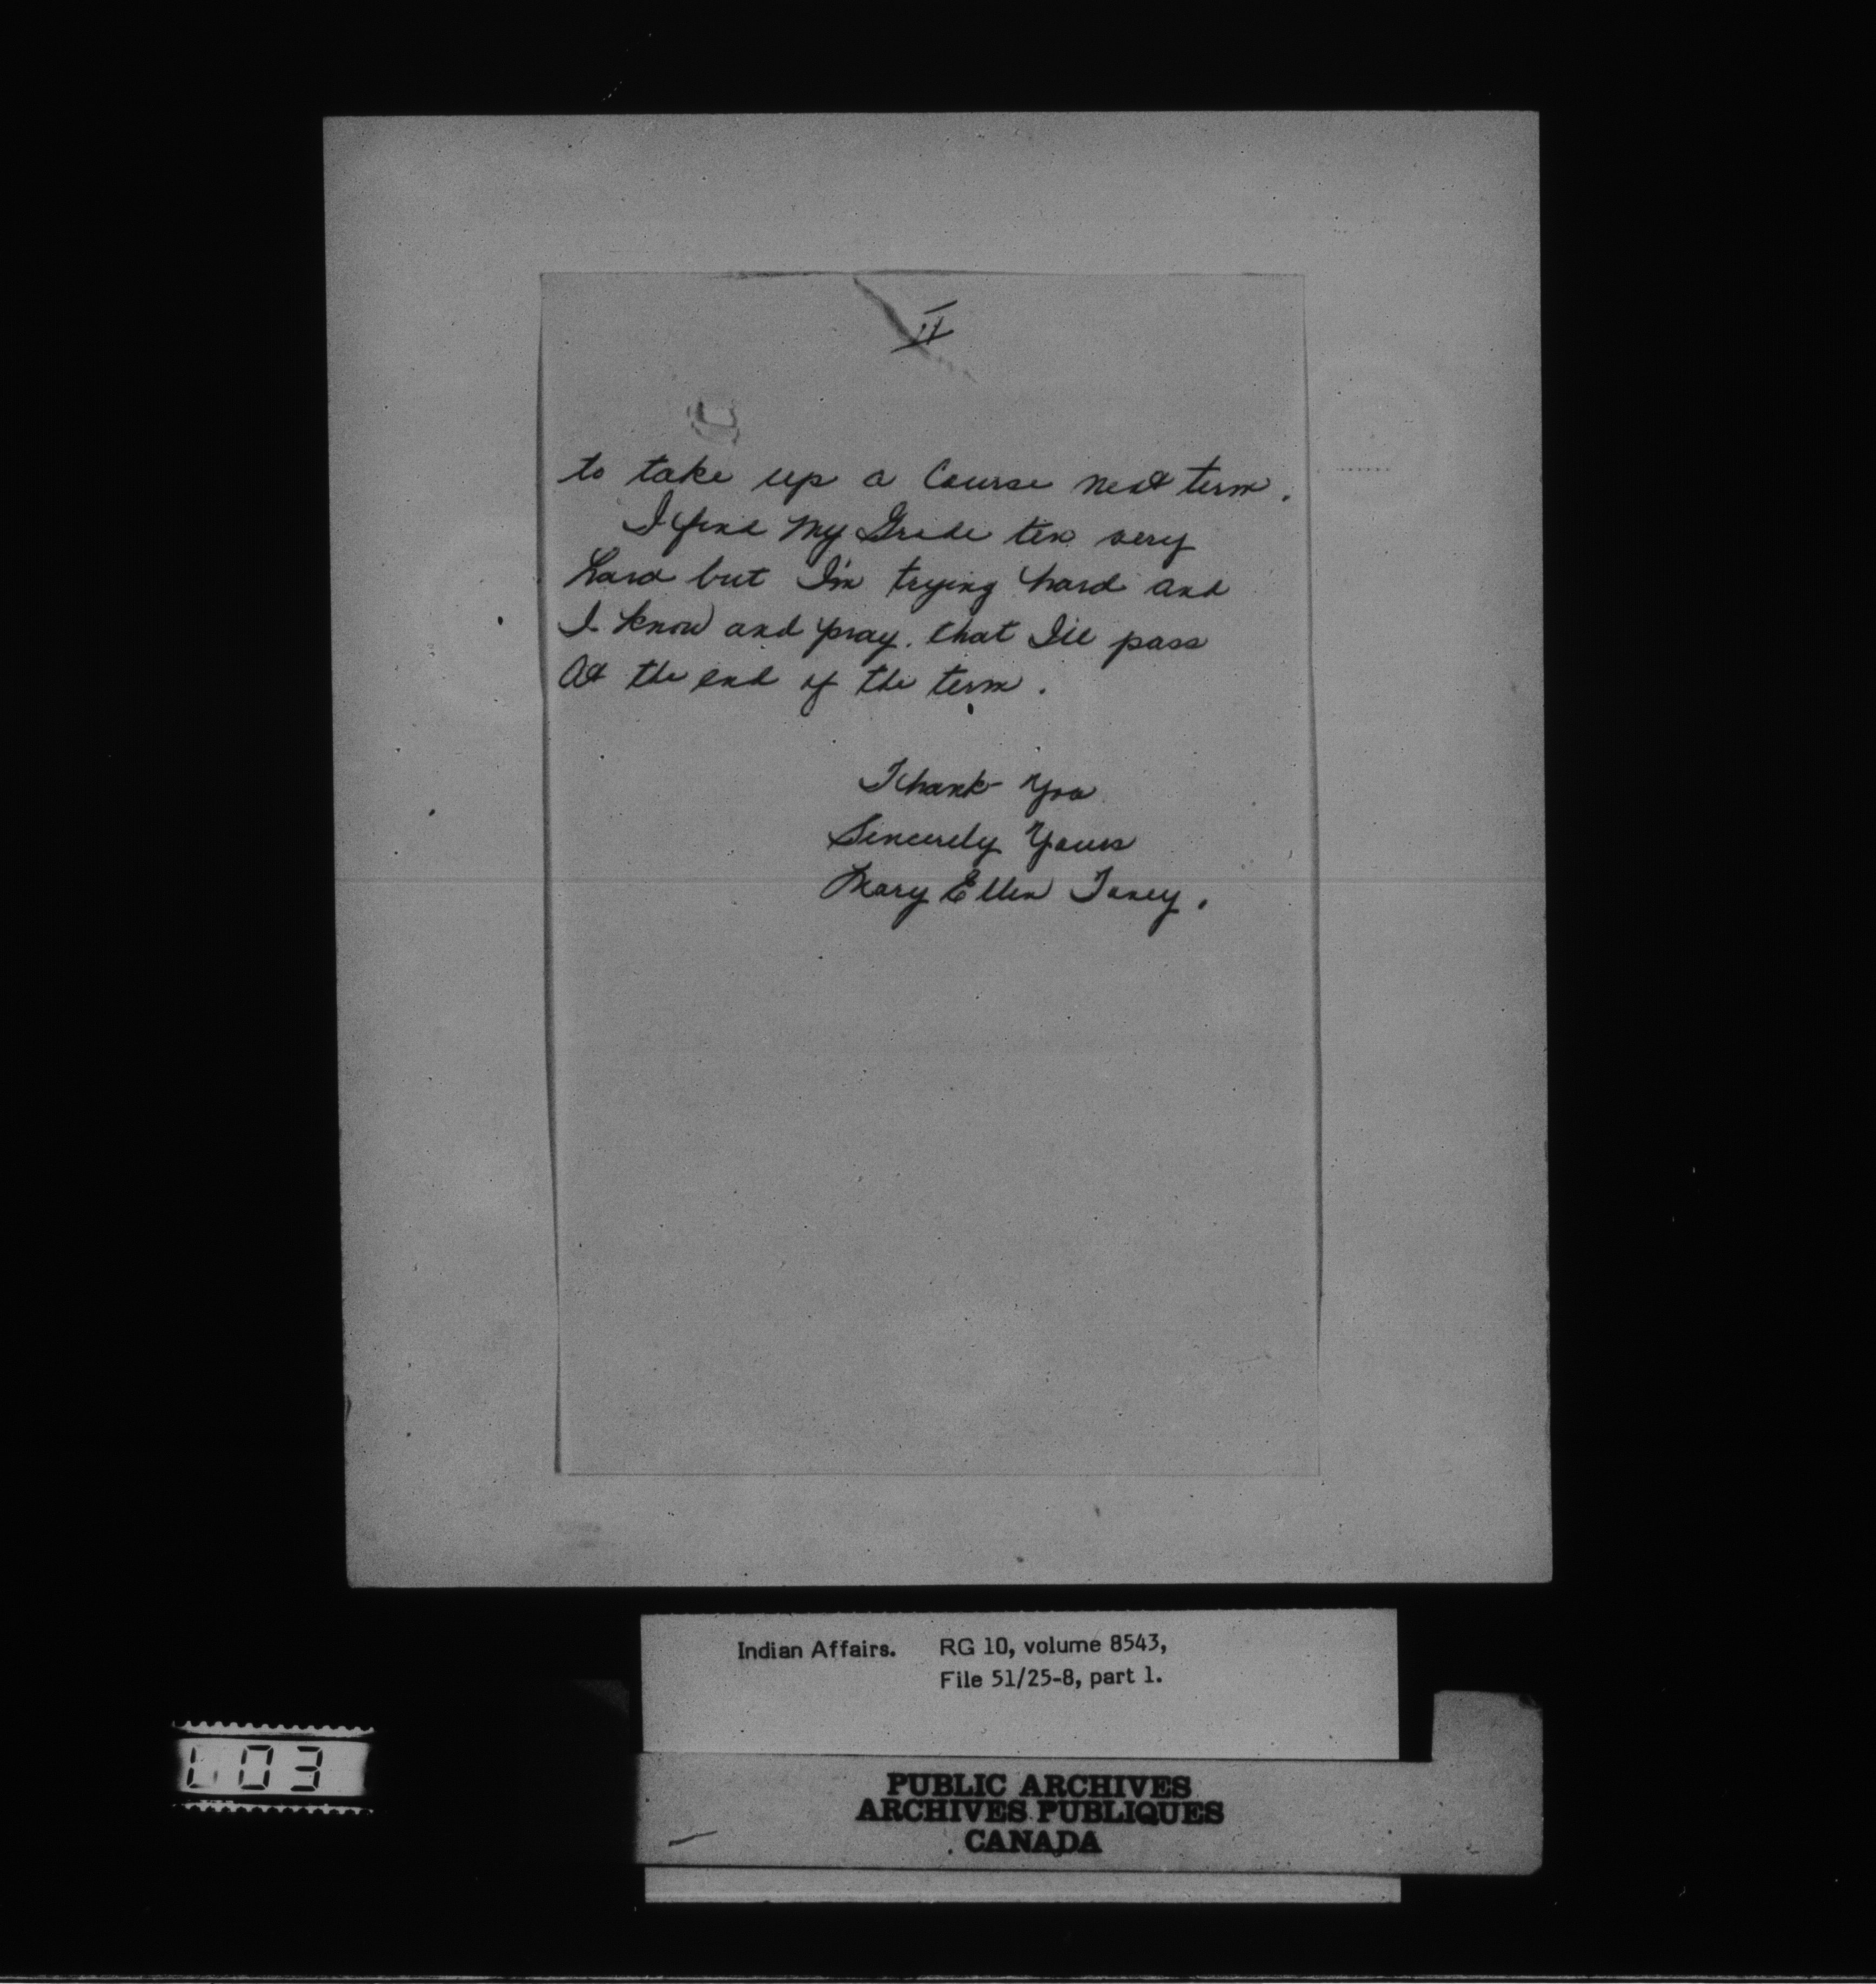 II
to take up a Course next term.
I find My Grade ten very
hard but I'm trying hard and
I know and pray. that I'll pass
At the end of the term.
Thank You
Sincerely Yours
Mary Ellen
Indian Affairs. RG 10, volume 8543,
File 51/25-8, part 1.
03
PUBLIC ARCHIVES
ARCHIVES PUBLIQUES
CANADA